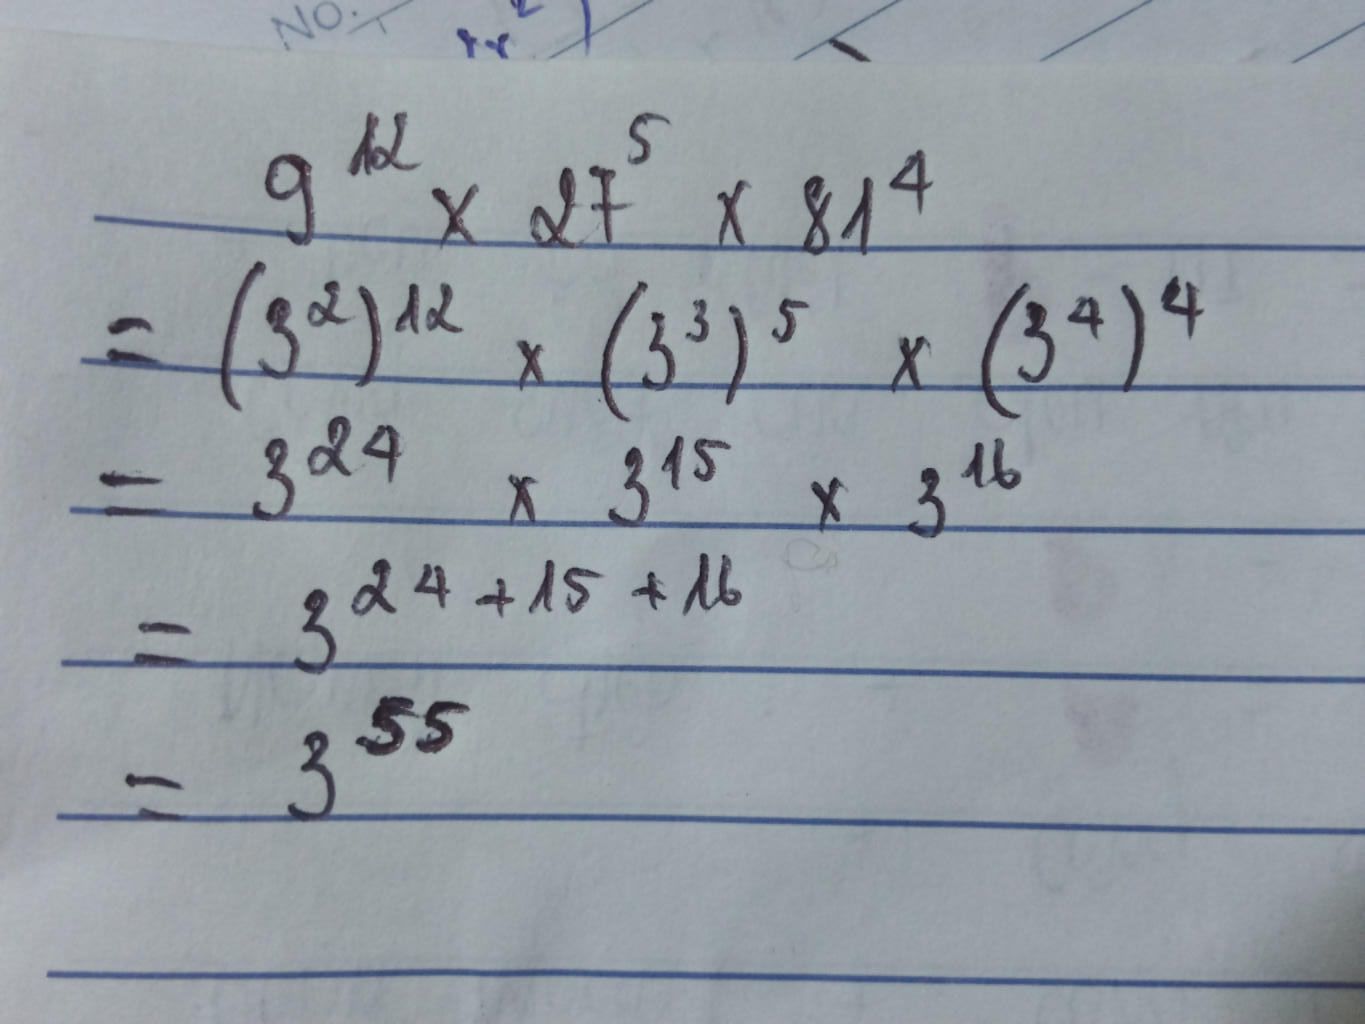 NO.
9^12 × 27^5 × 81^4
= (3^2)^12 × (3^3)^5 × (3^4)^4
= 3^24 × 3^15 × 3^16
= 3^24+15+16
= 3^55